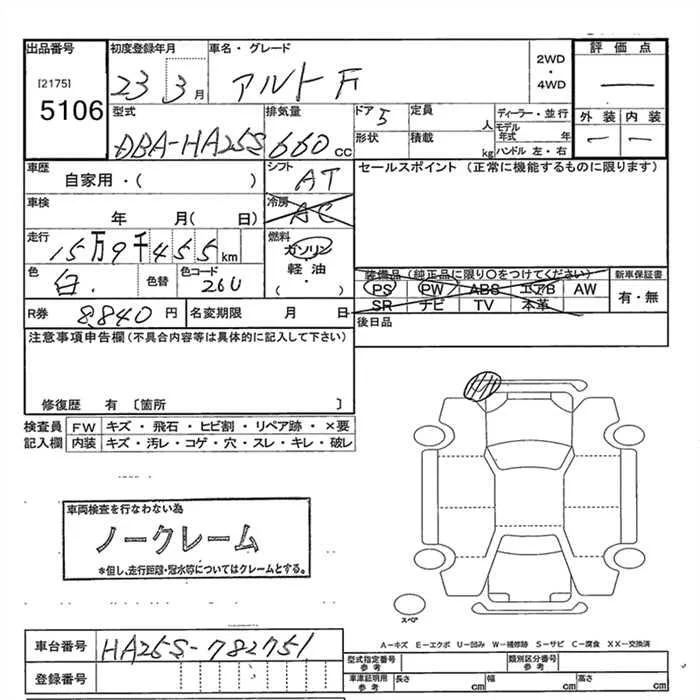 出品番号 初度登録年月 車名・グレード 2WD・4WD 評価点
[2175] 23 3月 アルト F —
5106
型式 排気量 ドア 定員 ディーラー・並行 外装 内装
DBA-HA25S 660cc 5 人 モデル年式 年 — —
形状 積載 kg ハンドル 左・右
車歴 シフト セールスポイント (正常に機能するものに限ります)
自家用・( ) AT
車検 冷房
年 月( 日) AC
走行 燃料
15万9千455km ガソリン
色 色替 色コード 軽油
白. 26U ( ・ )
装備品 (純正品に限り○をつけてください) 新車保証書
PS PW ABS エアB AW 有・無
SR ナビ TV 本革
R券 8,840円 名変期限 月 日 後日品
注意事項申告欄(不具合内容等は具体的に記入して下さい)
修復歴 有 〔箇所 〕
検査員 FW キズ・飛石・ヒビ割・リペア跡・×要
記入欄 内装 キズ・汚レ・コゲ・穴・スレ・キレ・破レ
車両検査を行なわない為
ノークレーム
*但し、走行距離・冠水等についてはクレームとする。
スペア
A-キズ E-エクボ U-凹み W-補修跡 S-サビ C-腐食 XX-交換済
車台番号 HA25S-782751
登録番号
型式指定番号参考 類別区分番号参考
車庫証明用参考 長さ cm 幅 cm 高さ cm